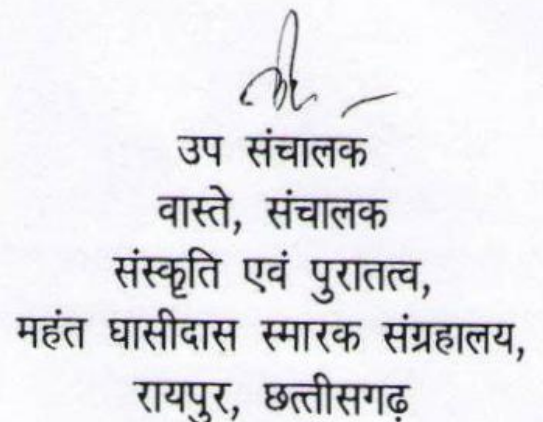 उप संचालक
वास्ते, संचालक
संस्कृति एवं पुरातत्व,
महंत घासीदास स्मारक संग्रहालय,
रायपुर, छत्तीसगढ़